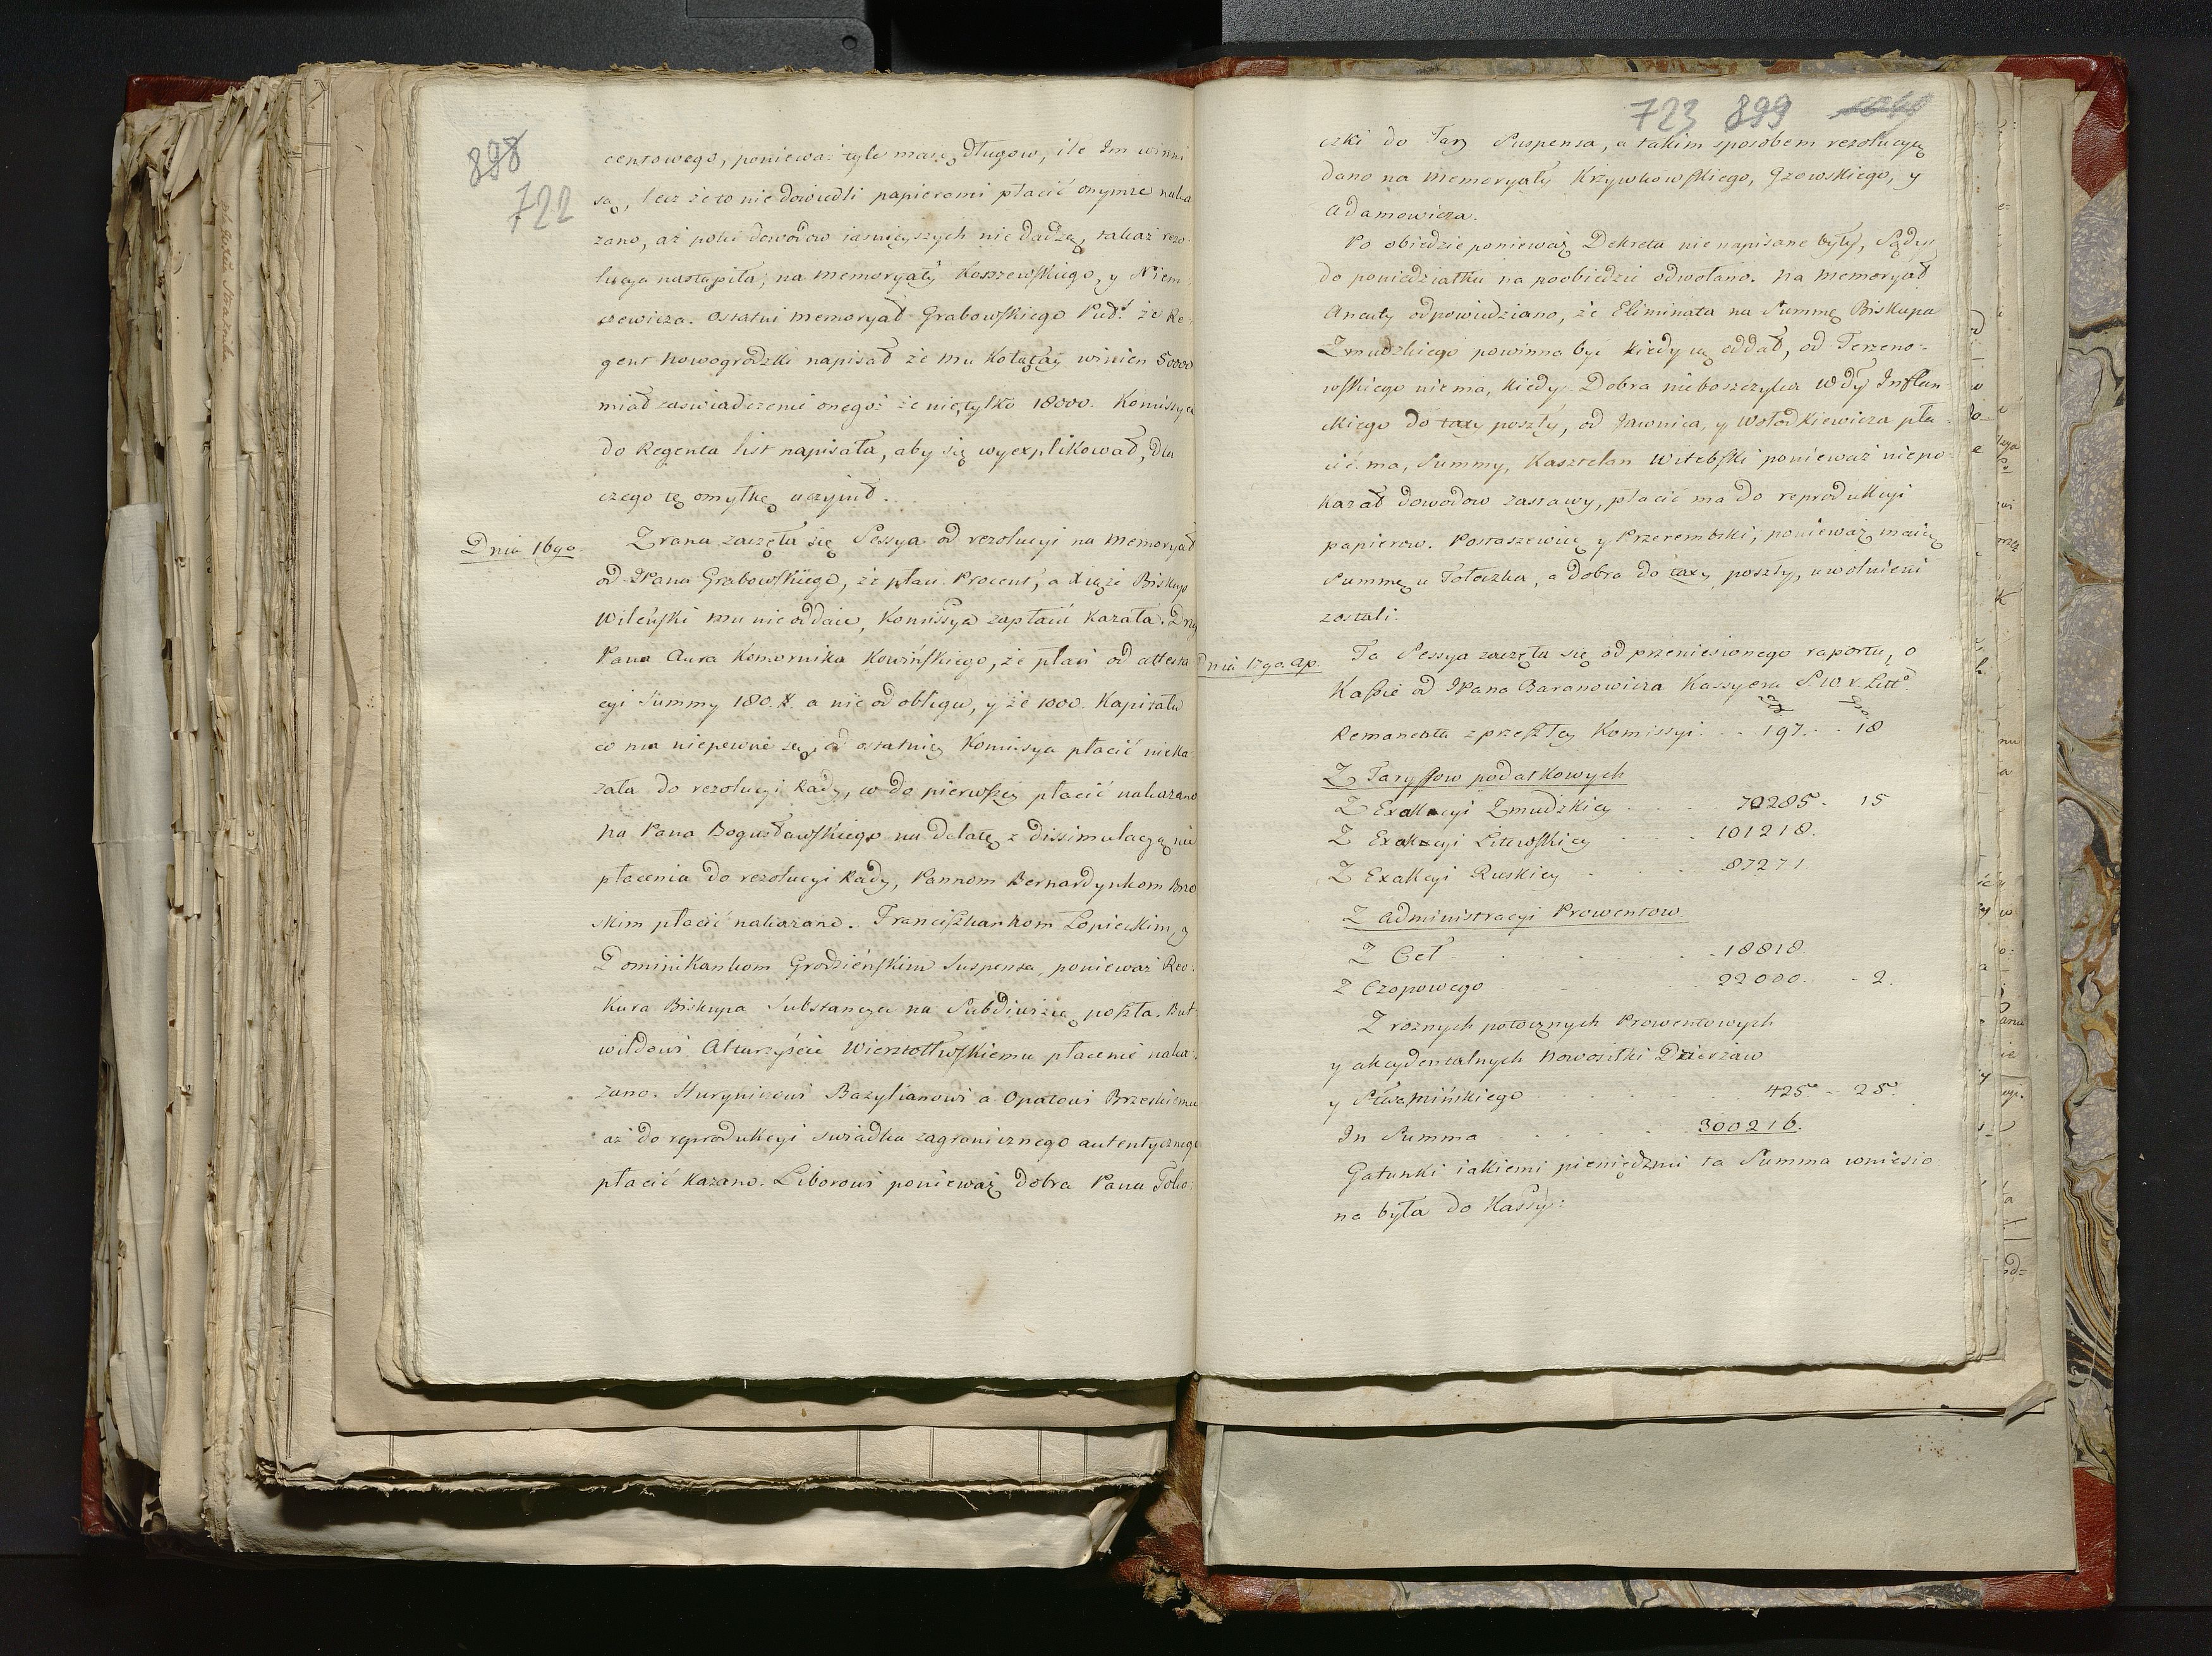 898
722
centowego, ponieważ tyle maią długow, ile Im winni
są, lecz że to nie dowiedli papierami płacić onymże naka
zano, aż poki dowodow iasnieyszych nie dadzą, takaż rezo-
lucya nastąpiła, na memoryały Koszewskiego, y Niem
cewicza. Ostatni memoryał Grabowskiego że Re-
gent Nowogrodzki napisał że mu Kołłątay winien 50000
miał zaswiadczenie onegoż że nie, tylko 18000. Komissya
do Regenta list napisała, aby się wyexplikował, dla
czego tę omyłkę uczynił.
Dnia 16go.
Zrana zaczęła się Sessya od rezolucyi na memoryał
od JPana Grabowskiego, że płaci Procent, a Xiąże Biskup
Wileński mu nie oddaie, Komissya zapłacić kazała. Drugi
Pana Aura Komornika Kowińskiego, że płaci od attesta-
cyi Summy 180. a nie od obligu, y że 1000. Kapitału
co ma niepewne są, od ostatniey Komissya płacić nieka
zała do rezolucyi Rady, co do pierwszey płacić nakazano
Na Pana Bogusławskiego na delatę z dissimulacyą nie
płacenia do rezolucyi Rady, Pannom Bernardynkom Brze
skim płacić nakazano. Franciszkankom Łopieckim, y
Dominikankom Grodzieńskim Suspensa, ponieważ
Biskupa Substancya na Subdiwizią poszła. But
wiłowi Altarzyście płacenie naka-
zano. Huryniczowi Bazylianowi a Opatowi Brzeskiemu
aż do reprodukcyi swiadka zagranicznego autentycznego
płacić kazano. Liborowi ponieważ dobra Pana Toło-
723 899
czki do Taxy Suspensa, a takim sposobem rezolucyą
dano na memoryały Krzywkowskiego, Gzowskiego, y
Adamowicza.
Po obiedzie ponieważ Dekreta nie napisane były, Sądy
do poniedziałku na poobiedzie odwołano. Na memoryał
Ancuty odpowiedziano, że Eliminata na Summę Biskupa
Zmudzkiego powinna być kiedy ią oddał, od Terzeno-
wskiego niema, kiedy Dobra nieboszczyka Wdy Inflan-
ckiego do taxy poszły, od Jawnica, y Wołodkiewicza pła-
cić ma, Summy, Kasztelan Witebski ponieważ niepo-
kazał dowodow zastawy, płacić ma do reprodukcyi
papierow. Postaszewicz y Przerembski, ponieważ maią
Summę u Tołoczka, a dobra do taxy poszły, uwolnieni
zostali.
Dnia 17go. ap.
Ta Sessya zaczęła się od przeniesionego raportu, o
Kassie od JPana Baranowicza Kassyera S. W. X. Litt.
Remanenta z przeszłey Komissyi. . . 197. . . 18
Z Taryffow podatkowych
Z Exakcyi Zmudzkiey . . . . 70285. 15
Z Exakcyi Litewskiey . . . 101218.
Z Exakcyi Ruskiey . . . . 87271
Z Administracyi Prowentow.
Z Ceł . . . . . . 18818.
Z Czopowego . . . . . 22000. - 2.
Z roznych potocznych Prowentowych
y akcydentalnych Nowosiłki Dzierżaw
y . . . . . 425. - 25.
In Summa . . . . . 300216.
Gatunki iakiemi pieniędzmi ta Summa wniesio
na była do Kassy: